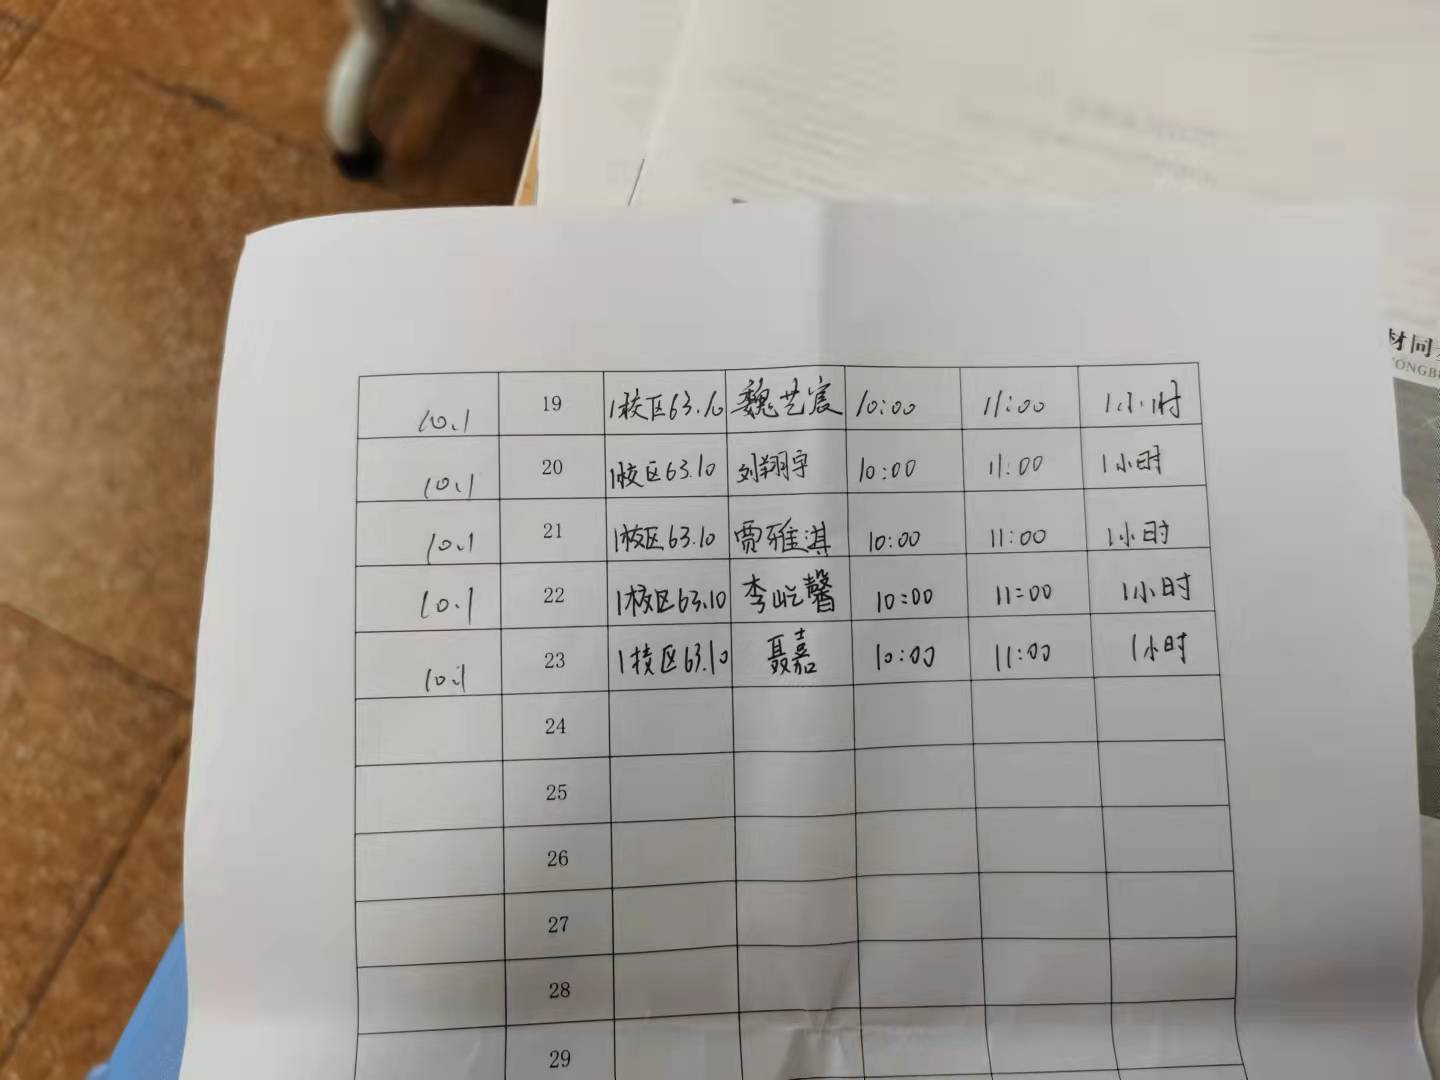 材同
TONGB
10.1 19 1校区63.10 魏艺宸 10:00 11:00 1小时
10.1 20 1校区63.10 刘翔宇 10:00 11:00 1小时
10.1 21 1校区63.10 贾雅淇 10:00 11:00 1小时
10.1 22 1校区63.10 李屹馨 10:00 11:00 1小时
10.1 23 1校区63.10 聂嘉 10:00 11:00 1小时
24
25
26
27
28
29